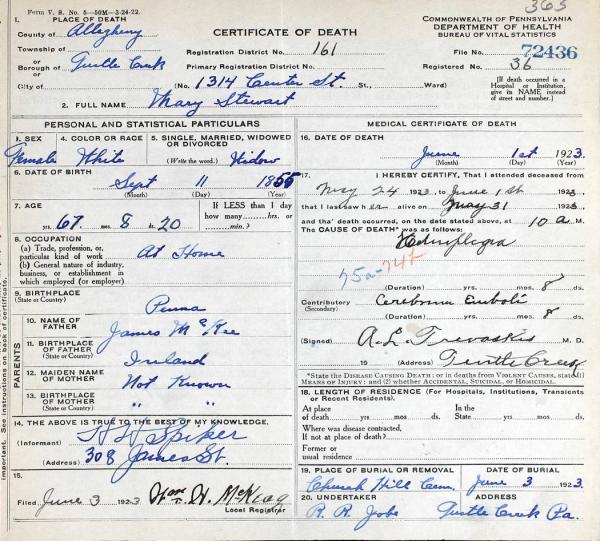 Form V. S. No. 5—50M—3-24-22.
363
1. PLACE OF DEATH
County of Allegheny
Township of
or
Borough of Turtle Creek
or
City of
CERTIFICATE OF DEATH
Registration District No. 161
Primary Registration District No.
(No. 1314 Center St. St., Ward)
COMMONWEALTH OF PENNSYLVANIA
DEPARTMENT OF HEALTH
BUREAU OF VITAL STATISTICS
File No. 72436
Registered No. 36
[If death occurred in a Hospital or Institution, give its NAME instead of street and number.]
2. FULL NAME Mary Stewart
PERSONAL AND STATISTICAL PARTICULARS
3. SEX
Female
4. COLOR OR RACE
White
5. SINGLE, MARRIED, WIDOWED OR DIVORCED
(Write the word.) Widow
6. DATE OF BIRTH
Sept 11 1855
(Month) (Day) (Year)
7. AGE
67 yrs. 8 mos. 20
If LESS than 1 day
how many hrs. or
min.?
8. OCCUPATION
(a) Trade, profession, or, particular kind of work At Home
(b) General nature of industry, business, or establishment in which employed (or employer)
9. BIRTHPLACE
(State or Country) Penna
PARENTS
10. NAME OF FATHER James McKee
11. BIRTHPLACE OF FATHER
(State or Country) Ireland
12. MAIDEN NAME OF MOTHER Not Known
13. BIRTHPLACE OF MOTHER
(State or Country) " "
14. THE ABOVE IS TRUE TO THE BEST OF MY KNOWLEDGE.
(Informant) Spiker
(Address) 308 James St.
15.
Filed June 3 1923 Wm. McKeag
Local Registrar
MEDICAL CERTIFICATE OF DEATH
16. DATE OF DEATH
June 1st 1923
(Month) (Day) (Year)
17. I HEREBY CERTIFY, That I attended deceased from
May 24 1923 to June 1st 1923
that I last saw her alive on May 31 1923
and that death occurred, on the date stated above, at 10 a M.
The CAUSE OF DEATH* was as follows:
Hemiplegia
75a-
(Duration) yrs. mos. 8 ds.
Contributory Cerebral Emboli
(Secondary)
(Duration) yrs. mos. 8 ds.
(Signed) A. L. Trevaskis M. D.
19 (Address) Turtle Creek
*State the DISEASE CAUSING DEATH; or in deaths from VIOLENT CAUSES, state (1) MEANS OF INJURY: and (2) whether ACCIDENTAL, SUICIDAL, OR HOMICIDAL.
18. LENGTH OF RESIDENCE (For Hospitals, Institutions, Transients or Recent Residents).
At place of death yrs mos ds.
In the State yrs. mos. ds.
Where was disease contracted, If not at place of death?
Former or usual residence
19. PLACE OF BURIAL OR REMOVAL
Church Hill Cem.
DATE OF BURIAL
June 3 1923
20. UNDERTAKER
R. R. Jobe
ADDRESS
Turtle Creek Pa.
important. See instructions on back of certificate.